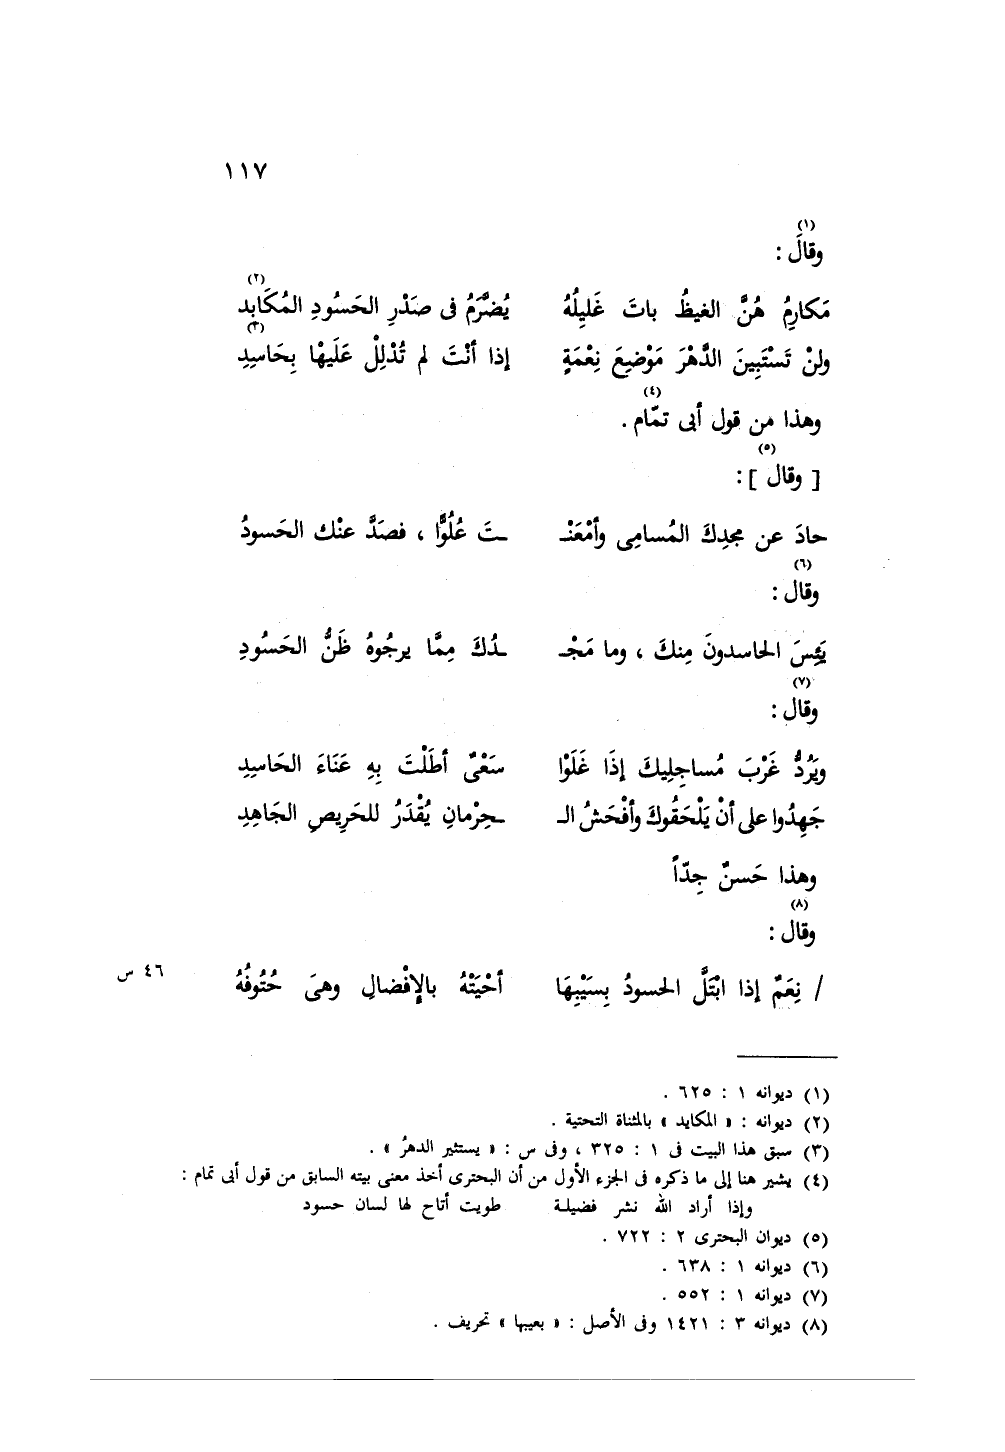 ١١٧
(١)
وقالَ :
(٢)
مَكارِمُ هُنَّ الغيظُ باتَ غَليِلُهُ يُضَّرَمُ فى صَدْرِ الحَسُودِ المُكَابِد
(٣)
ولنْ تَسْتَبِينَ الدَّهْرَ مَوْضِعَ نِعْمَةٍ إذا أنْتَ لم تُدْلِلْ عَلَيْها بِحَاسِدِ
(٤)
وهذا من قول أبى تمّام .
(٥)
[ وقال ] :
حادَ عن مجدِكَ المُسامِى وأمْعَنْـ ـتَ عُلُوًّا ، فصَدَّ عنْك الحَسودُ
(٦)
وقال :
يَئِسَ الحاسدونَ مِنكَ ، وما مَجْـ ـدُكَ مِمَّا يرجُوهُ ظَنُّ الحَسُودِ
(٧)
وقال :
ويَرُدُّ غَرْبَ مُساجِلِيكَ إذَا غَلَوْا سَعْىٌ أطَلْتَ بِهِ عَنَاءَ الحَاسِدِ
جَهِدُوا على أنْ يَلْحَقُوكَ وأفْحَشُ الـ ـحِرْمانِ يُقْدَرُ للحَرِيصِ الجَاهِدِ
وهذا حَسنٌ جِدّاً
(٨)
وقال :
/ نِعَمٌ إذا ابْتَلَّ الحسودُ بِسَيْبِهَا أحْيَتْهُ بالإِفْضالِ وهىَ حُتُوفُهُ ٤٦ س
(١) ديوانه ١ : ٦٢٥ .
(٢) ديوانه : « المكايد » بالمثناة التحتية .
(٣) سبق هذا البيت فى ١ : ٣٢٥ ، وفى س : « يستثير الدهرُ » .
(٤) يشير هنا إلى ما ذكره فى الجزء الأول من أن البحترى أخذ معنى بيته السابق من قول أبى تمام :
وإذا أراد الله نشر فضيلـة طويت أتاح لها لسان حسود
(٥) ديوان البحترى ٢ : ٧٢٢ .
(٦) ديوانه ١ : ٦٣٨ .
(٧) ديوانه ١ : ٥٥٢ .
(٨) ديوانه ٣ : ١٤٢١ وفى الأصل : « بعيبها » تحريف .